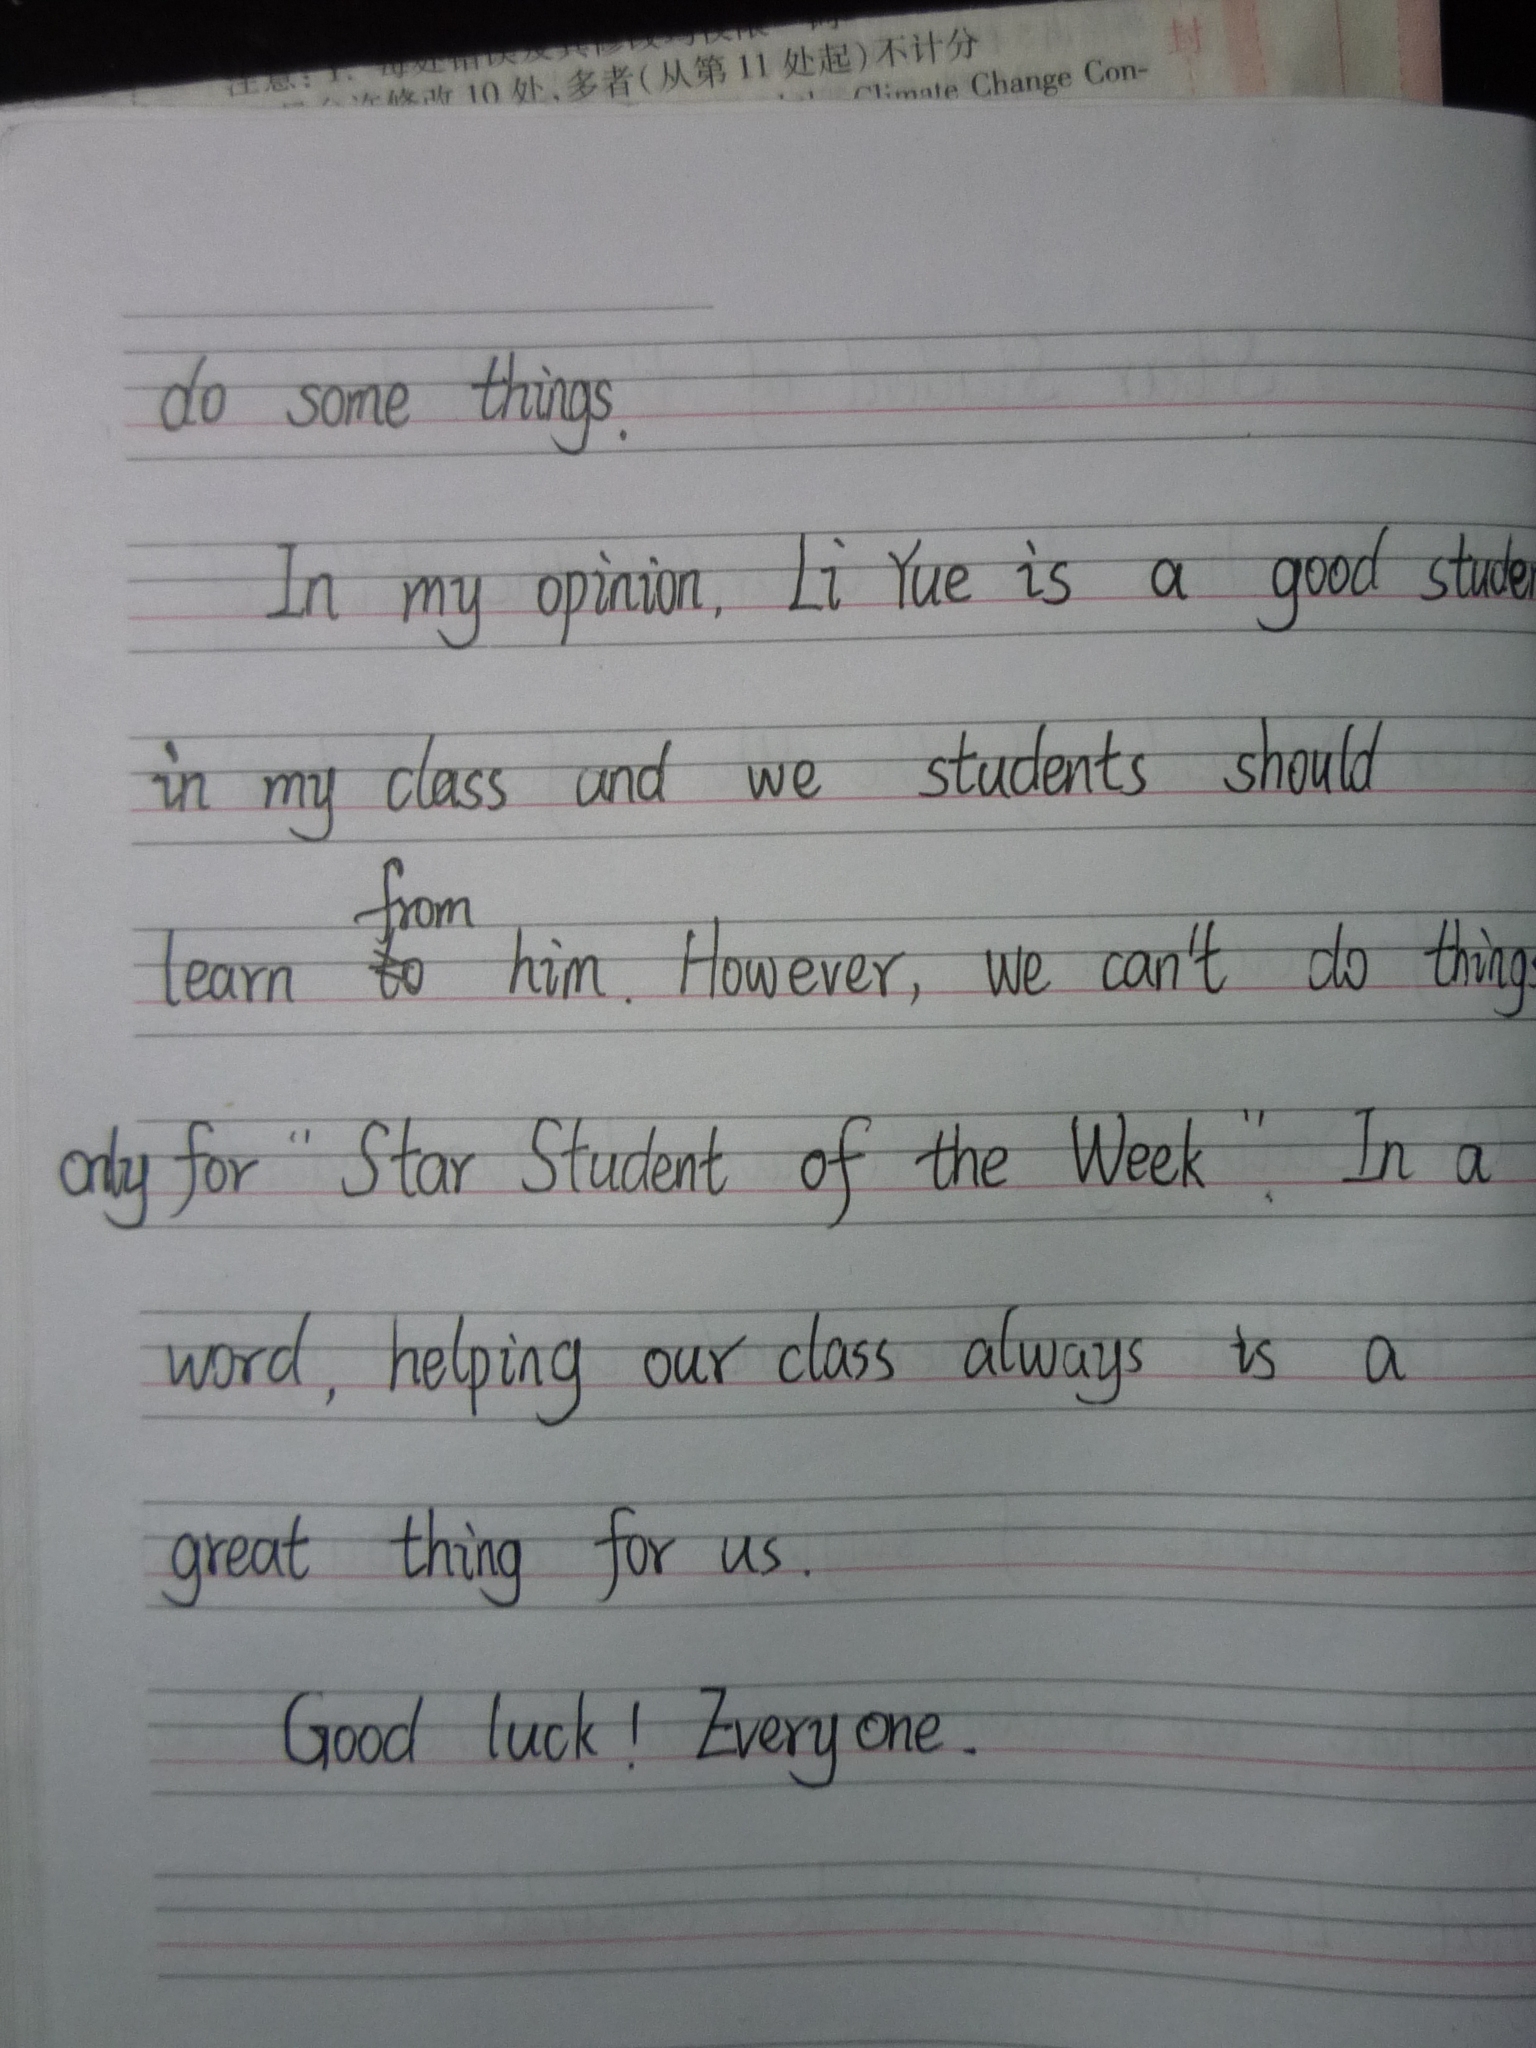 注意:1. 每处错误及其修改均仅限一词
10 处,多者(从第 11 处起)不计分
封
Climate Change Con-
do some things.
In my opinion, Li Yue is a good studen
in my class and we students should
from
learn to him. However, we can't do things
only for "Star Student of the Week". In a
word, helping our class always is a
great thing for us.
Good luck! Everyone.